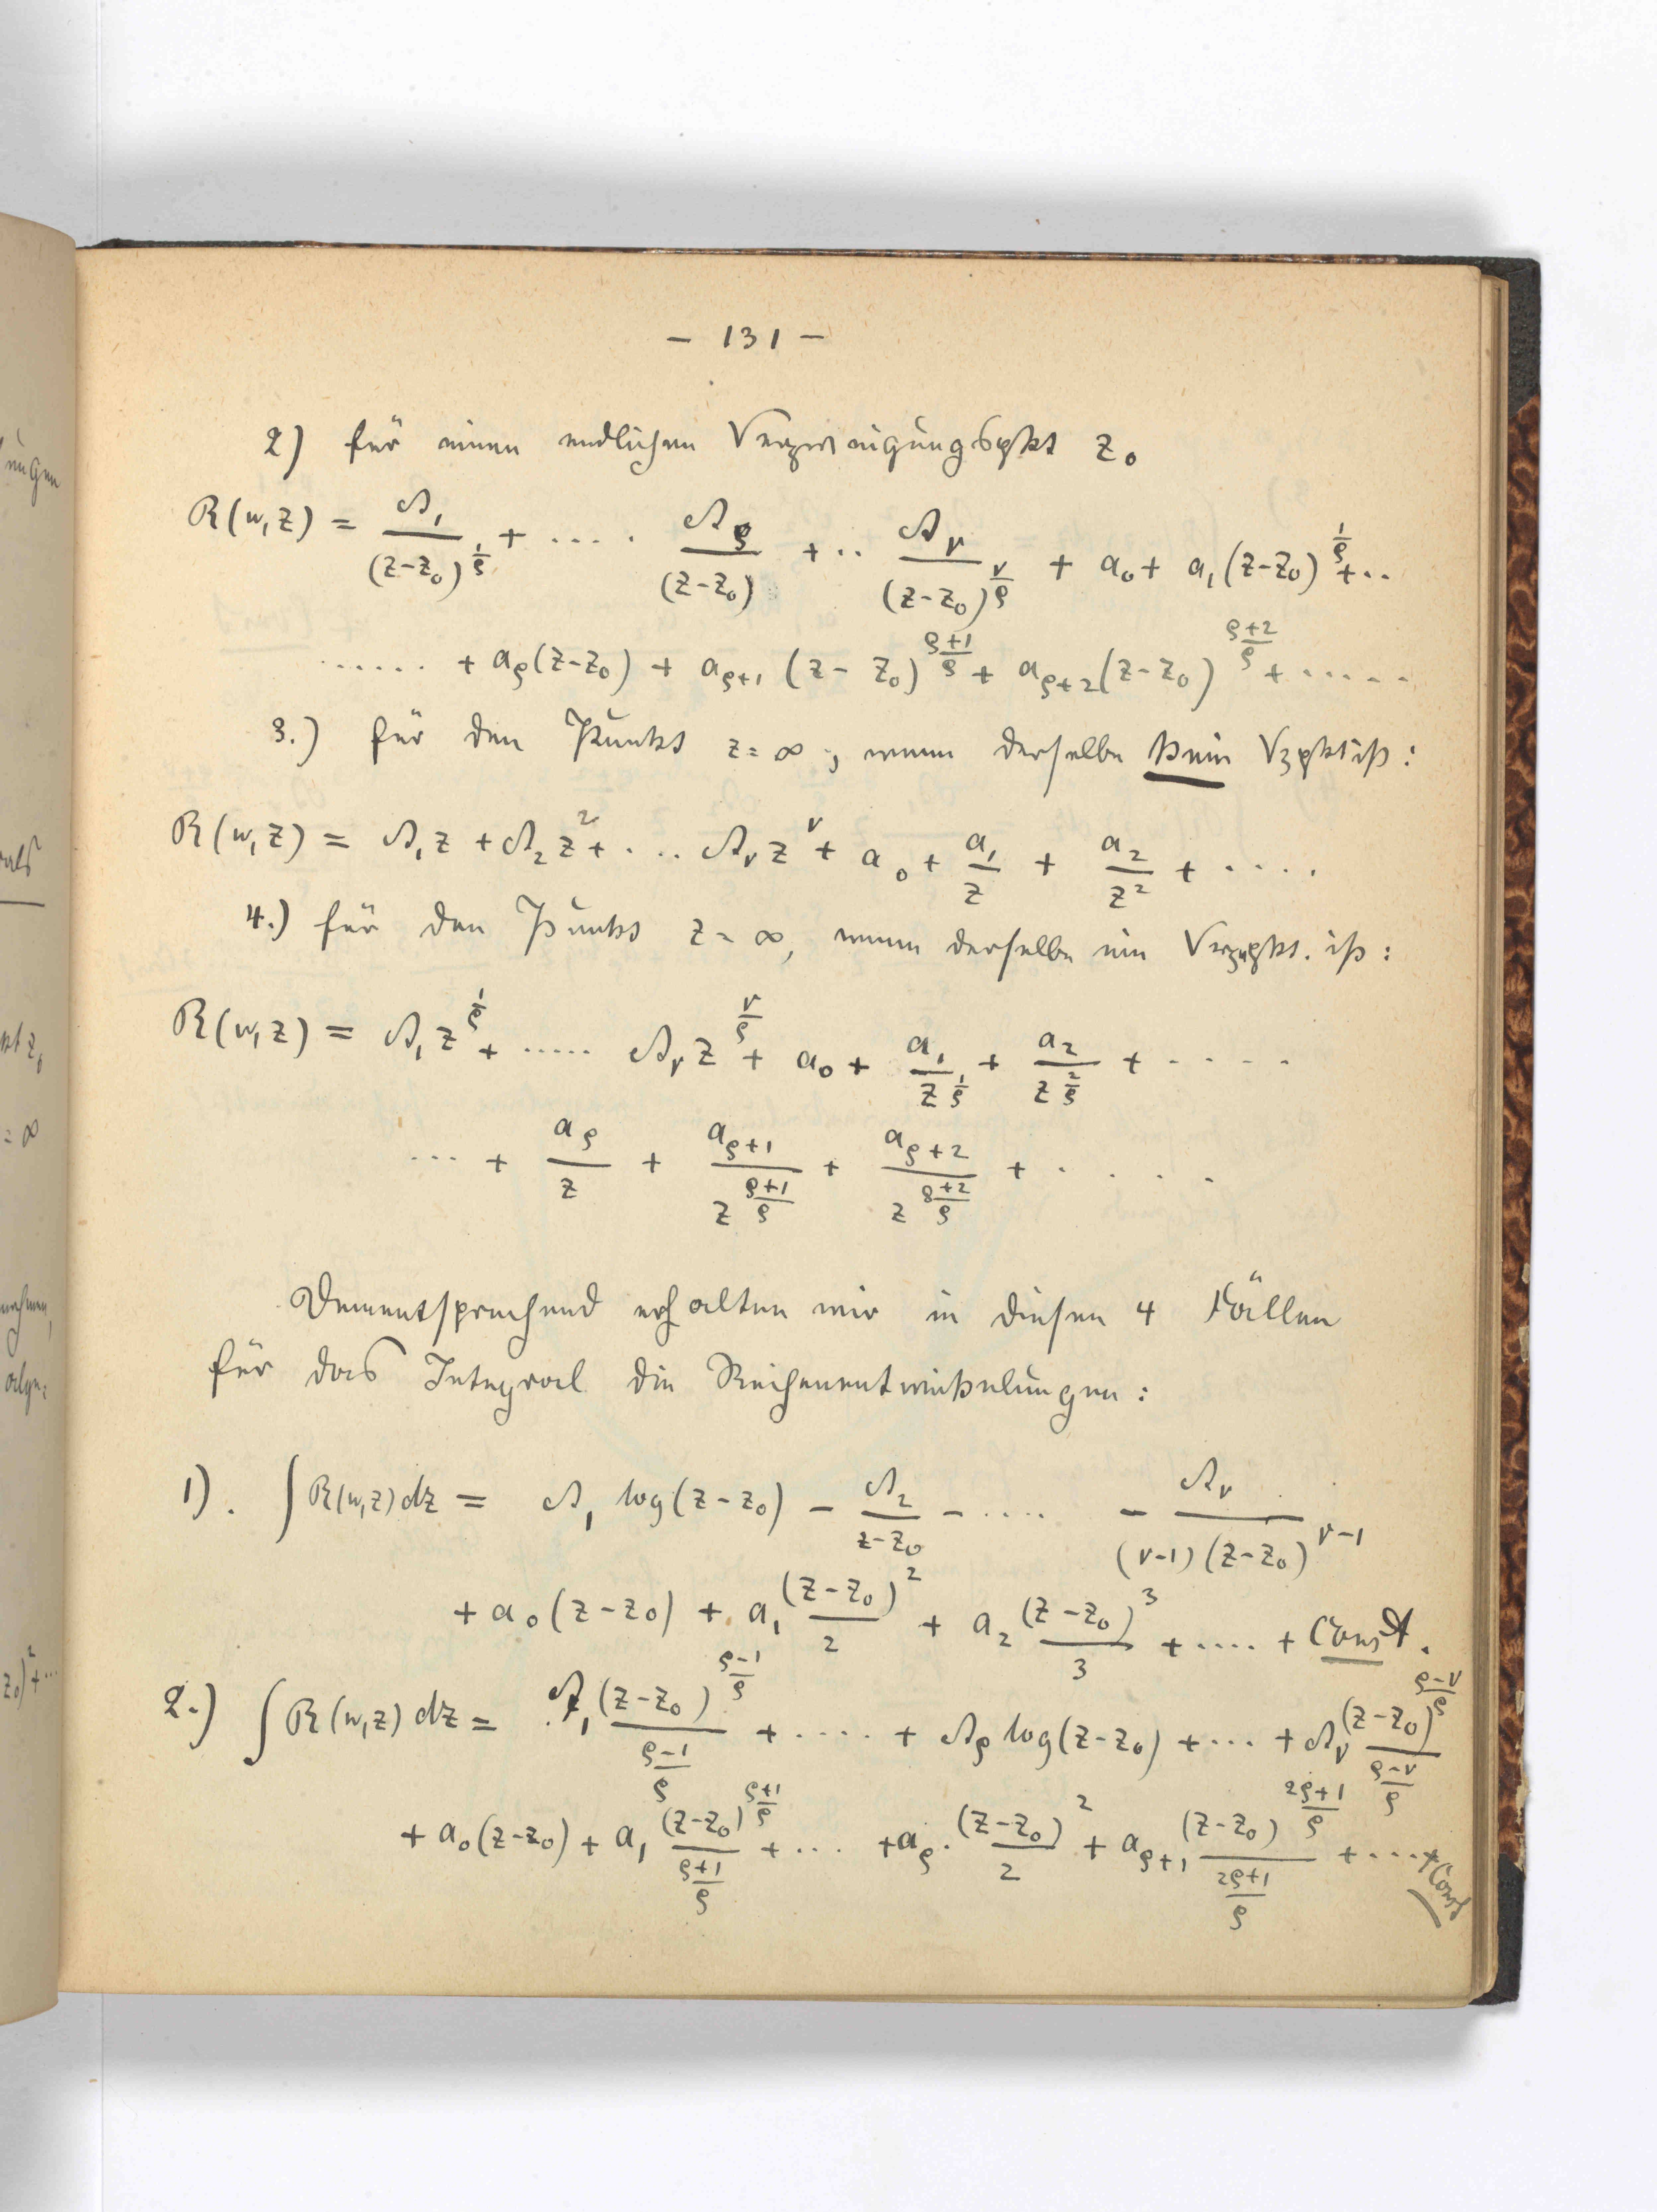 – 131 –
2) für einen endlichen Verzweigungspkt z₀
R(w,z) = A₁/(z-z₀)^(1/ρ) + ..... A_ρ/(z-z₀) + .. A_ν/(z-z₀)^(ν/ρ) + a₀ + a₁(z-z₀)^(1/ρ) + ..
...... + a_ρ(z-z₀) + a_(ρ+1) (z-z₀)^((ρ+1)/ρ) + a_(ρ+2)(z-z₀)^((ρ+2)/ρ) + .....
3.) für den Punkt z = ∞, wenn derselbe kein Vzpkt ist:
R(w,z) = A₁z + A₂z² + .... A_ν z^ν + a₀ + a₁/z + a₂/z² + ....
4.) für den Punkt z = ∞, wenn derselbe ein Verzwpkt. ist:
R(w,z) = A₁z^(1/ρ) + ..... A_ν z^(ν/ρ) + a₀ + a₁/z^(1/ρ) + a₂/z^(2/ρ) + .....
... + a_ρ/z + a_(ρ+1)/z^((ρ+1)/ρ) + a_(ρ+2)/z^((ρ+2)/ρ) + ....
Dementsprechend erhalten wir in diesen 4 Fällen
für das Integral die Reihenentwickelungen:
1). ∫R(w,z)dz = A₁ log(z-z₀) – A₂/(z-z₀) – .... – A_ν/((ν-1)(z-z₀)^(ν-1))
+ a₀(z-z₀) + a₁ (z-z₀)²/2 + a₂ (z-z₀)³/3 + .... + Const.
2.) ∫R(w,z)dz = A₁ (z-z₀)^((ρ-1)/ρ)/((ρ-1)/ρ) + .... + A_ρ log(z-z₀) + ... + A_ν (z-z₀)^((ρ-ν)/ρ)/((ρ-ν)/ρ)
+ a₀(z-z₀) + a₁ (z-z₀)^((ρ+1)/ρ)/((ρ+1)/ρ) + ... + a_ρ · (z-z₀)²/2 + a_(ρ+1) (z-z₀)^((2ρ+1)/ρ)/((2ρ+1)/ρ) + .... + Const